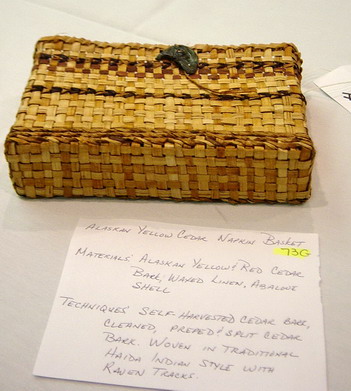 Alaskan Yellow Cedar Napkin Basket
73G
Materials: Alaskan Yellow & Red Cedar
Bark, Waxed Linen, Abalone
Shell
Techniques: Self-Harvested Cedar Bark,
Cleaned, Preped & Split Cedar
Bark. Woven in Traditional
Haida Indian Style with
Raven Tracks.